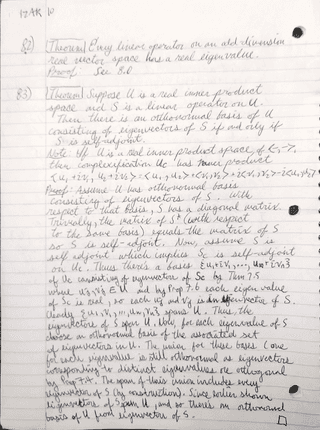 82) Theorem Every linear operator on an odd dimension
real vector space has a real eigenvalue.
Proof. See 8.6
83) Theorem Suppose U is a real inner product
space and S is a linear operator on U.
Then there is an orthonormal basis of U
consisting of eigenvectors of S if and only if
S is self-adjoint.
Note: If U is a real inner product space of <.,.>,
then complexification Uc has inner product
Proof. Assume U has orthonormal basis
consisting of eigenvectors of S. With
respect to that basis, S has a diagonal matrix.
Trivially, the matrix of S* (with respect
to the same basis) equals the matrix of S
so S is self-adjoint. Now, assume S is
self adjoint which implies Sc is self-adjoint
on Uc. Thus, there's a basis {u1+iv1, ..., um+ivm}
of Uc consisting of eigenvectors of Sc by Thm 7.5
where uj, vj ∈ U and by Prop 7.6 each eigenvalue
of Sc is real, so each uj and vj is an eigenvector of S.
Clearly {u1, v1, ..., um, vm} spans U. Thus, the
eigenvectors of S span U. Now, for each eigenvalue of S
choose an orthonormal basis of the associated set
of eigenvectors in U. The union of these bases (one
for each eigenvalue) is still orthonormal as eigenvectors
corresponding to distinct eigenvalues are orthogonal
by Prop 7.A. The span of this union includes every
eigenvector of S (by construction). Since earlier shown
eigenvectors of S span U, and so there's an orthonormal
basis of U from eigenvectors of S.